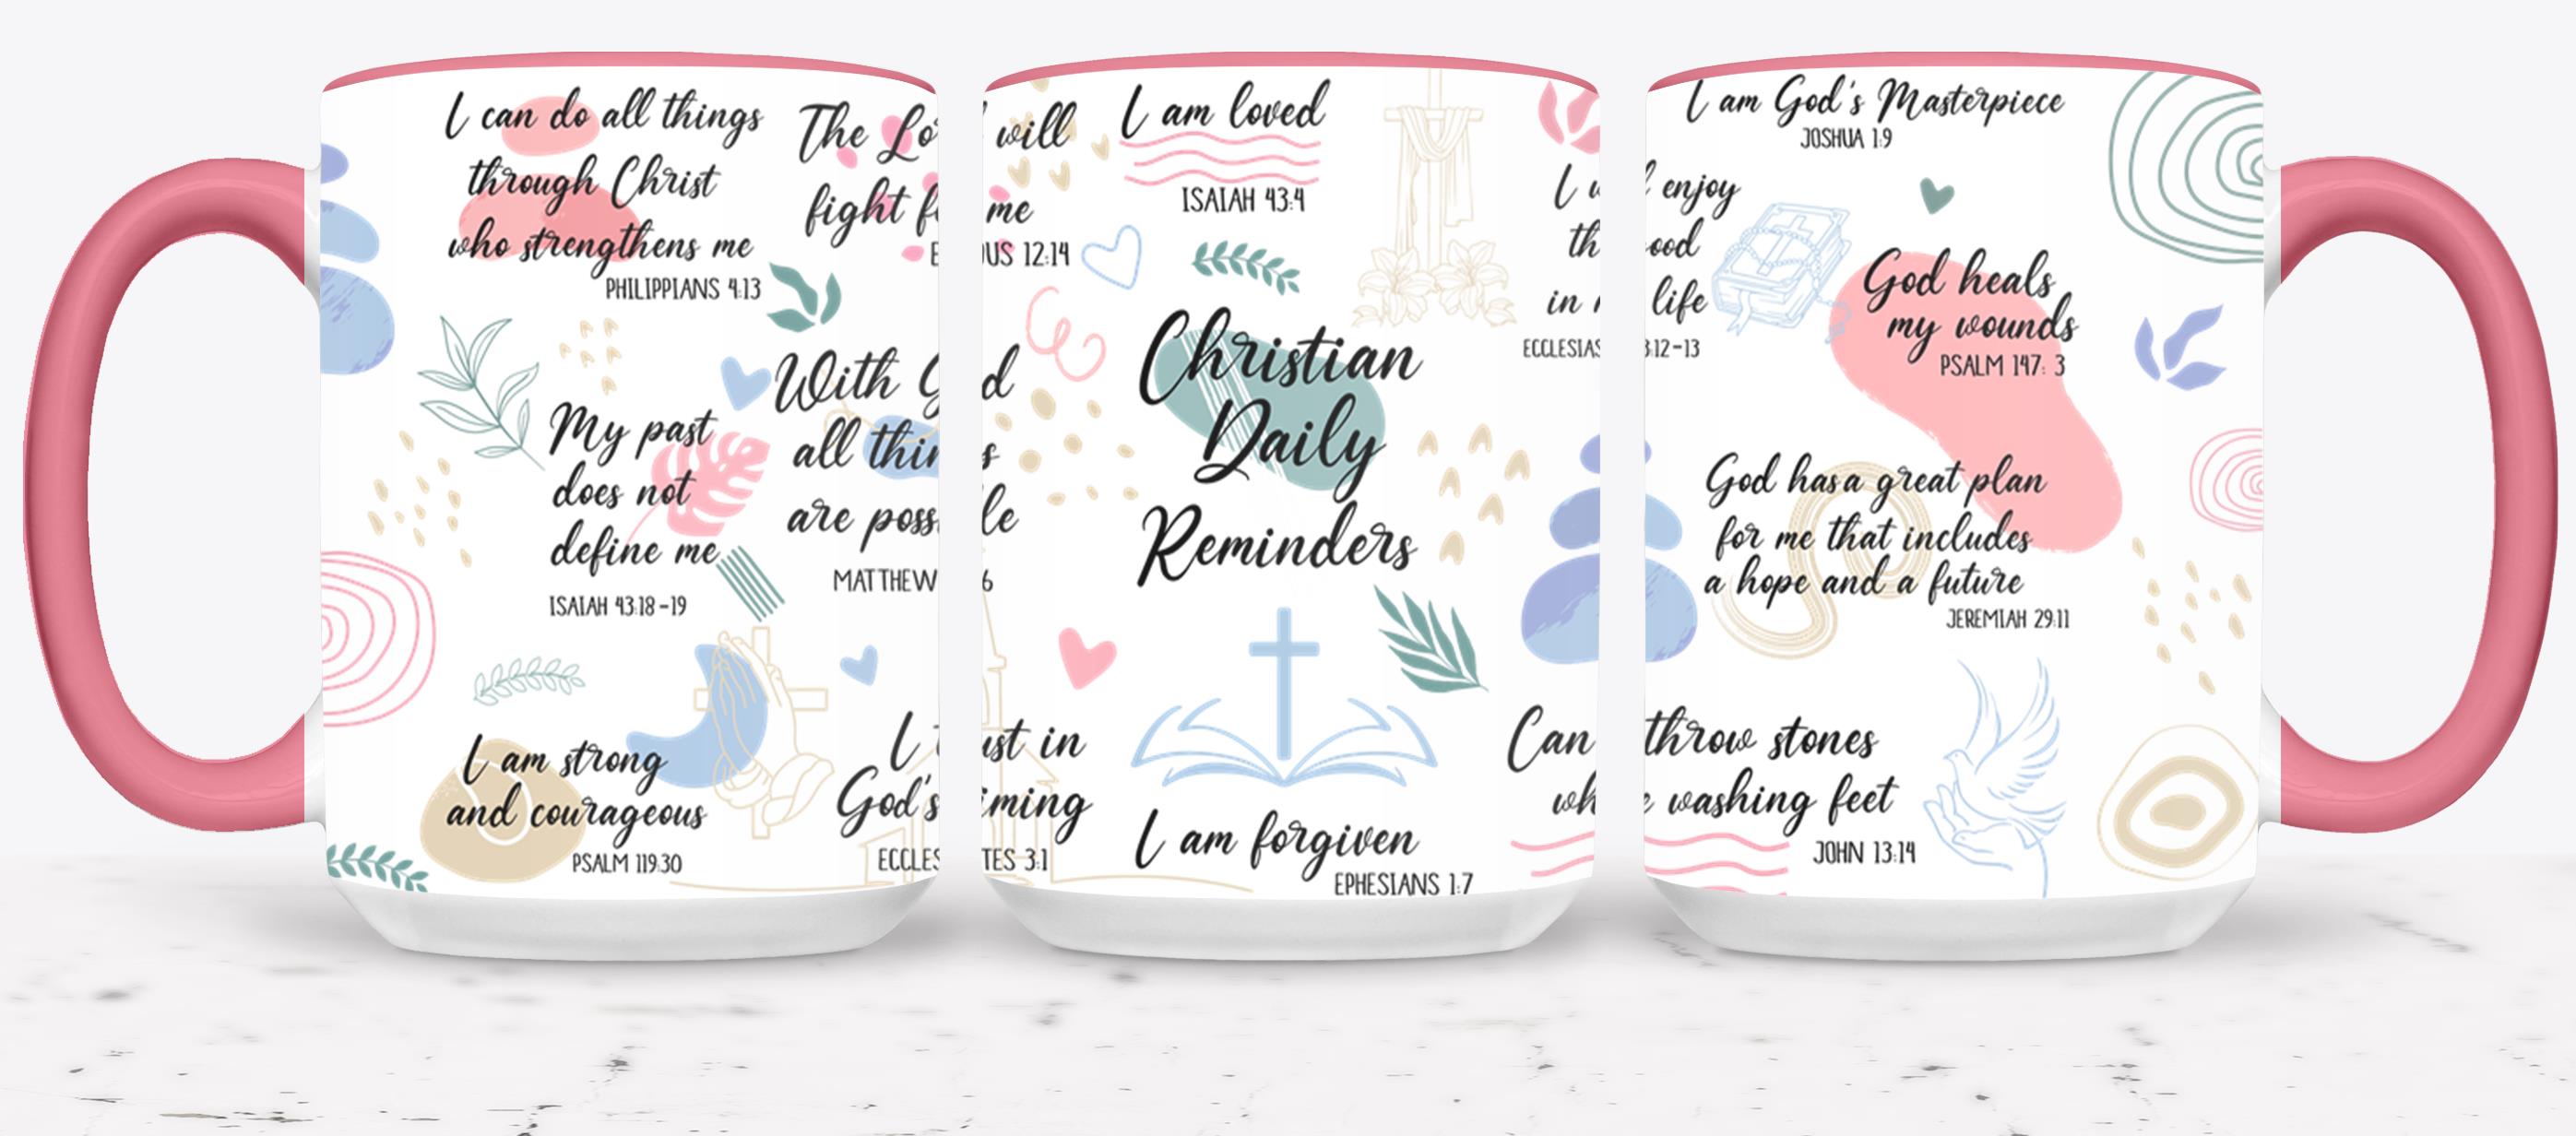 I can do all things
through Christ
who strengthens me
PHILIPPIANS 4:13
The Lo
fight f
My past
does not
define me
ISAIAH 43:18-19
With G
all thin
are poss
MATTHEW
I am strong
and courageous
PSALM 119:30
I
God's
ECCLES
will
me
US 12:14
I am loved
ISAIAH 43:4
d
s
le
6
Christian
Daily
Reminders
ust in
iming
TES 3:1
I am forgiven
EPHESIANS 1:7
I
th
in
ECCLESIAS
Can
wh
I am God's Masterpiece
JOSHUA 1:9
enjoy
ood
life
3:12-13
God heals
my wounds
PSALM 147: 3
God has a great plan
for me that includes
a hope and a future
JEREMIAH 29:11
throw stones
e washing feet
JOHN 13:14